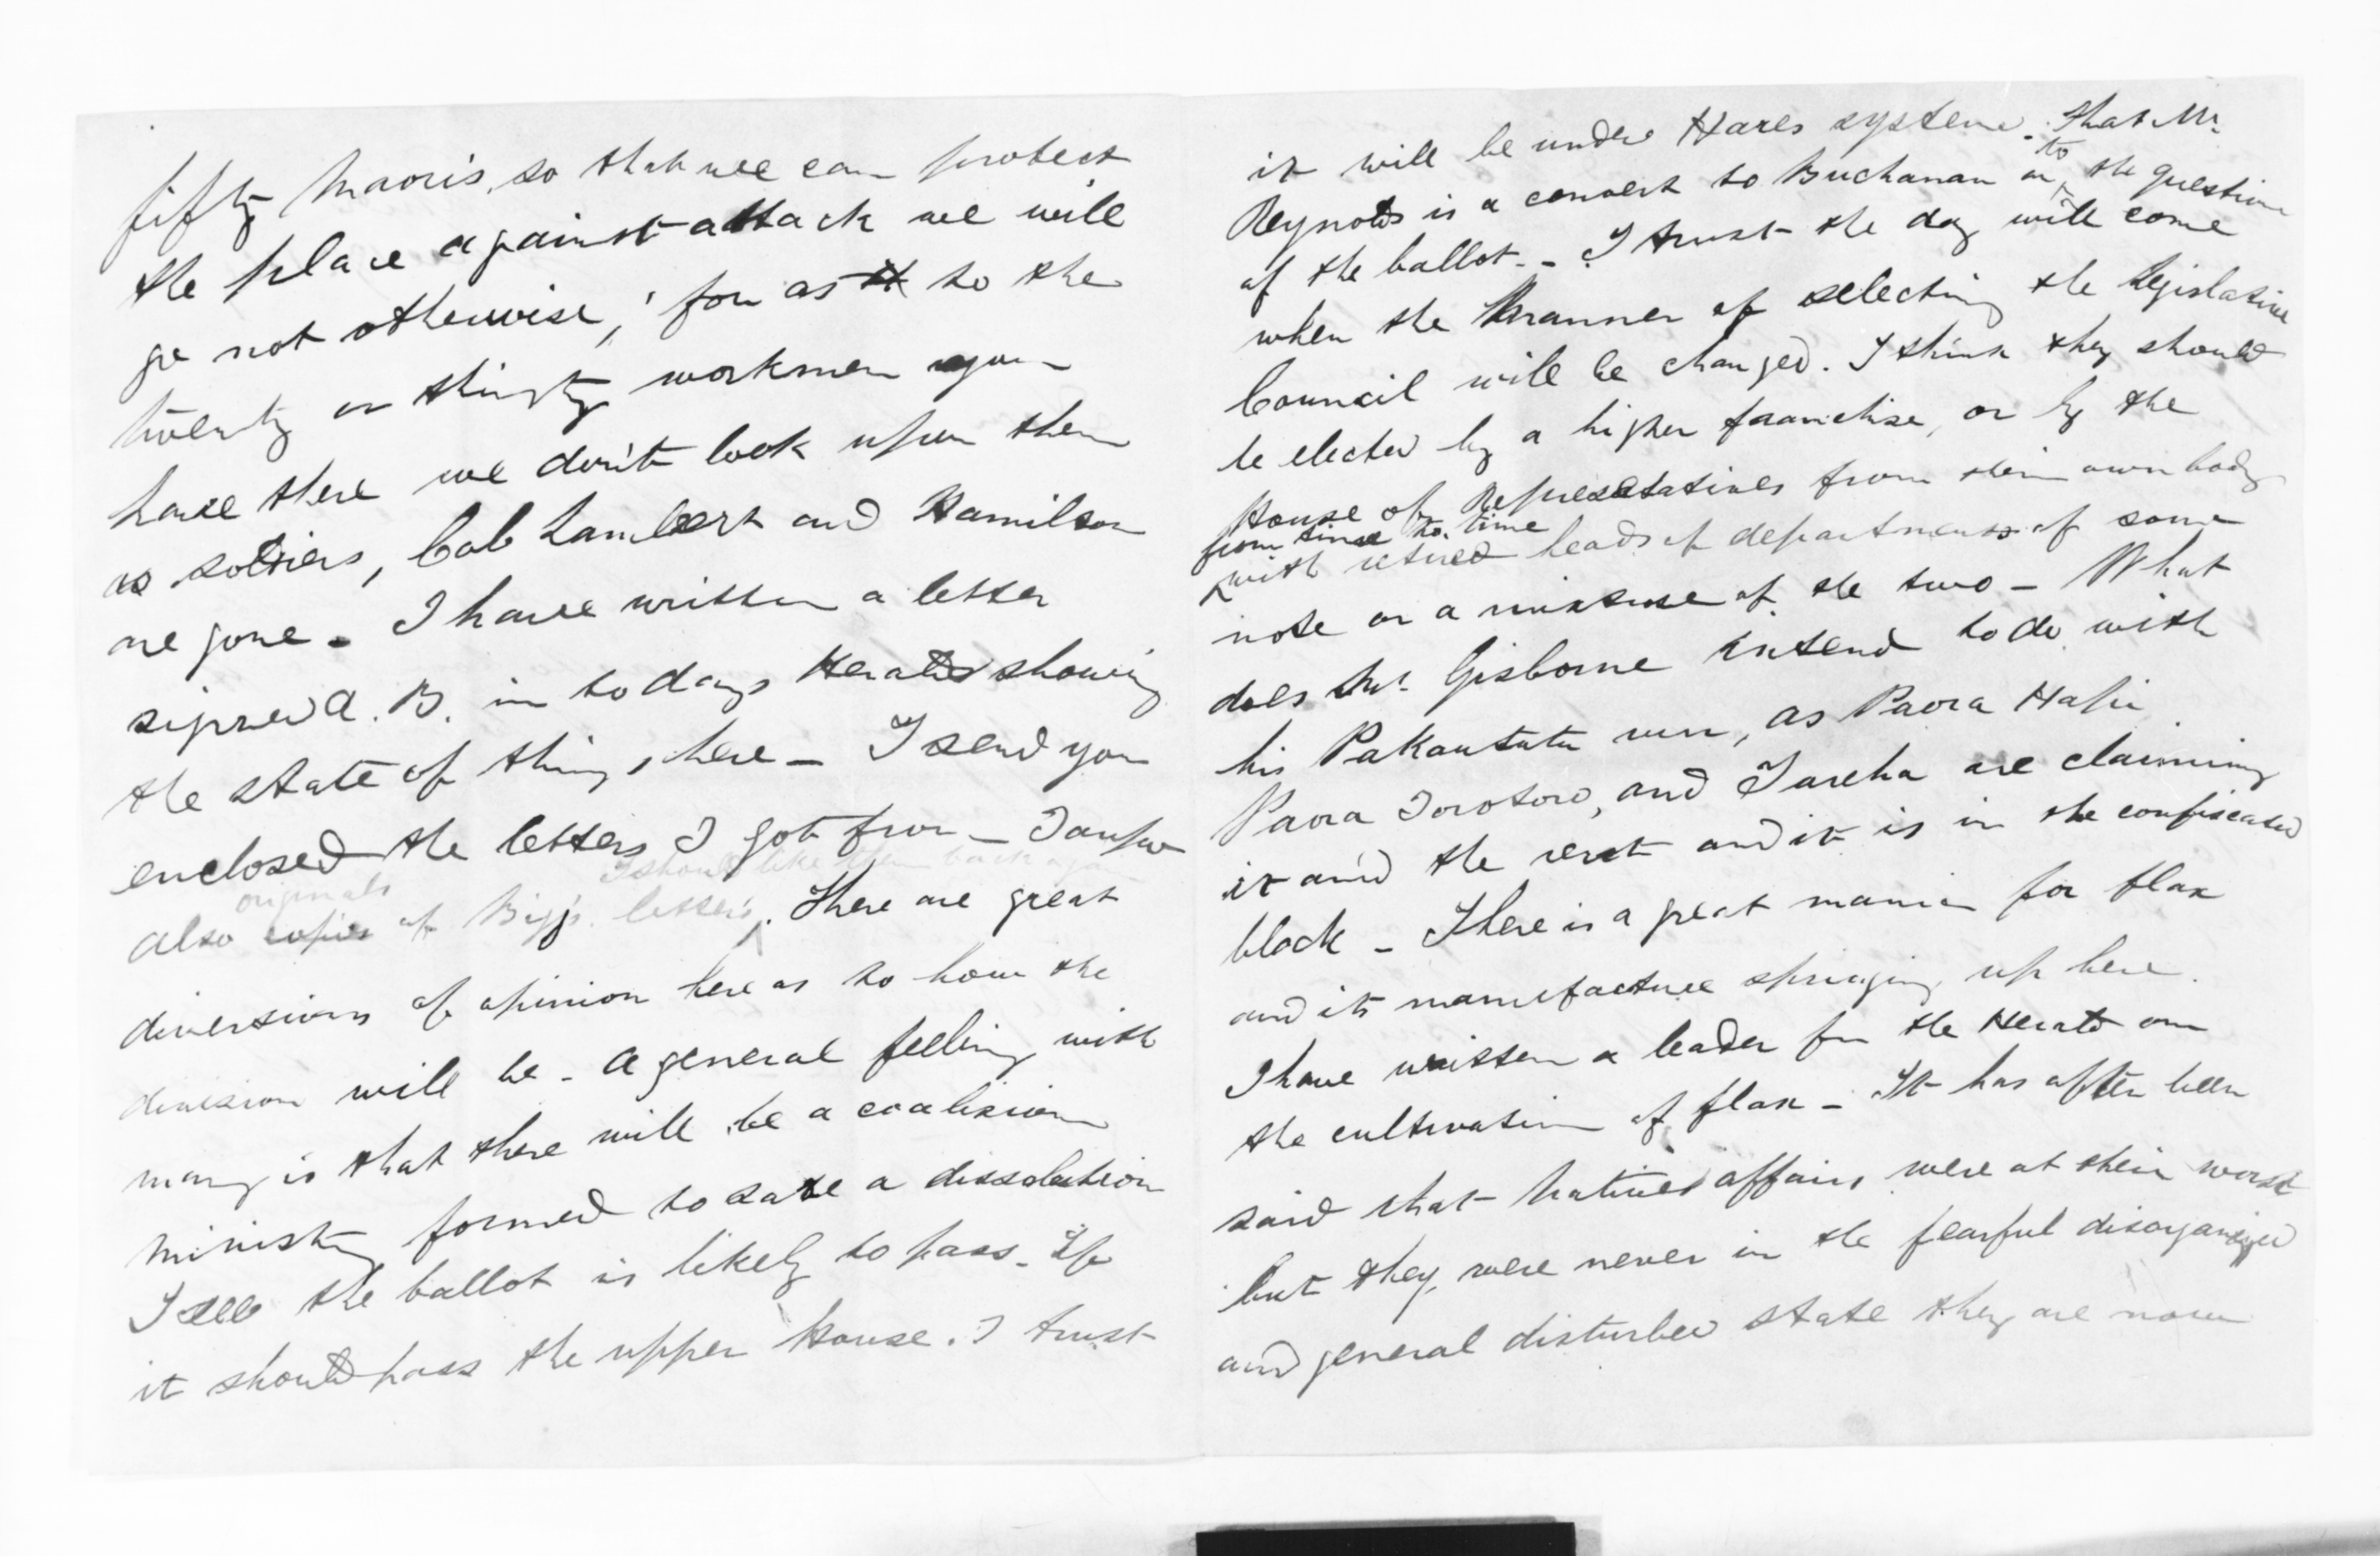 fifty Maoris, so that we can protect
the place against attack we will
go not otherwise; for as to the
twenty or thirty workmen you
have there we don't look upon them
as soldiers, Cab Lambert and Hamilton
are gone - I have written a letter
signed A. B. in to days Herald showing
the state of things here - I send you
enclosed the letters I got from - Taupo
originals I should like them back again
also copies of Biggs letters. There are great
diversions of opinion here as to how the
division will be - A general feeling with
many is that there will be a coalision
ministry formed to save a dissolution
I see the ballot is likely to pass - If
it should pass the upper House. I trust
it will be under Hares system - That Mr.
Reynolds is a convert to Buchanan on to the question
of the ballot - I trust the day will come
when the Manner of selecting the Legislative
Council will be changed. I think they should
be elected by a higher franchise, or by the
House of Representatives from their own body
from time to time
with retired heads of departments of some
note or a mixture of the two - What
does Mr. Gisborne intend to do with
his Pakautatu run, as Paora Hapi
Paora Torotoro, and Tareha are claiming
it and the rest and it is in the confiscated
block - There is a great mania for flax
and its manufacture springing up here.
I have written a leader for the Herald on
the cultivation of flax - It has often been
said that Natives affairs were at their worst
but they were never in the fearful disorganized
and general disturbed state they are now